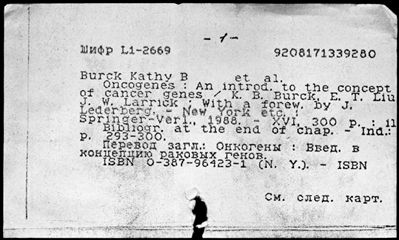 - 1 -
Шифр L1-2669 9208171339280
Burck Kathy B et al.
Oncogenes : An introd. to the concept
of cancer genes / K. B. Burck, E. T. Liu
J. W. Larrick ; With a forew. by J.
Lederberg. - New York etc. :
Springer-Verl., 1988. - XVI, 300 p. : il
Bibliogr. at the end of chap. - Ind.:
p. 293-300.
Перевод загл.: Онкогены : Введ. в
концепцию раковых генов.
ISBN 0-387-96423-1 (N. Y.). - ISBN
См. след. карт.